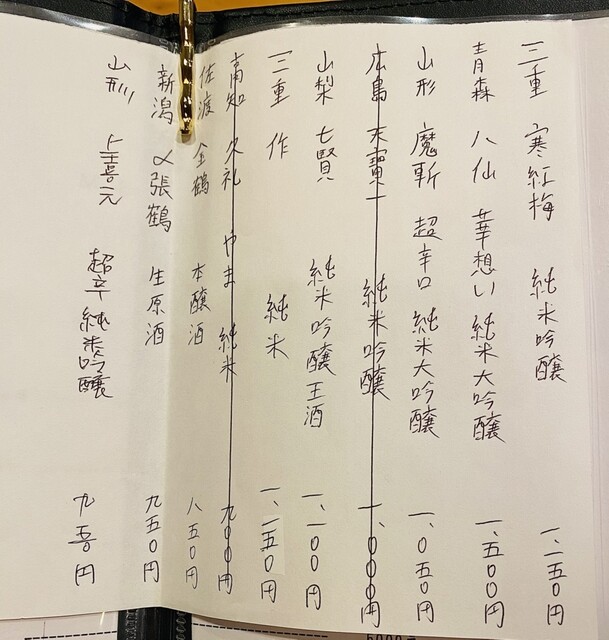 三重 寒紅梅 純米吟醸 一、一五〇円
青森 八仙 華想い 純米大吟醸 一、五〇〇円
山形 魔斬 超辛口 純米大吟醸 一、〇五〇円
広島 天寶一 純米吟醸 一、〇〇〇円
山梨 七賢 純米吟醸 王酒 一、一〇〇円
三重 作 純米 一、一五〇円
高知 久礼 やま 純米 九〇〇円
佐渡 金鶴 本醸酒 八五〇円
新潟 〆張鶴 生原酒 九五〇円
山形 上喜元 超辛 純米吟醸 九五〇円